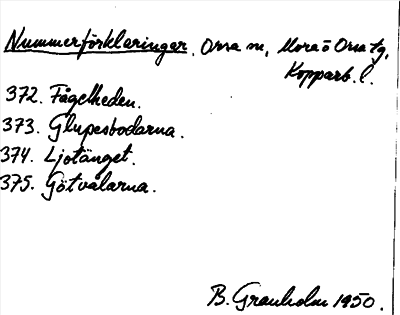 Nummerförklaringar. Orsa sn, Mora o Orsa tg,
Kopparb. l.
372. Fågelheden.
373. Glupesbodarna.
374. Ljotänget.
375. Götvalarna.
B. Granholm 1950.